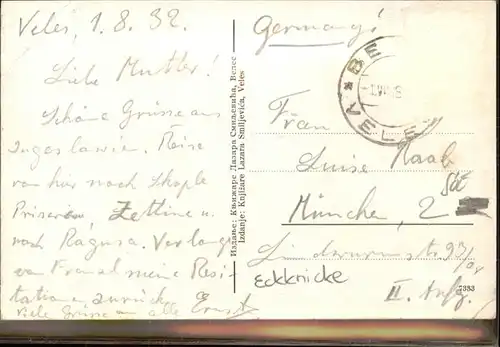 Veles, 1.8.32.
Liebe Mutter!
Schöne Grüsse aus
Jugoslawien. Reise
von hier nach Skoplje
Prizeren Zettine u.
nach Ragusa. Verlange
von Franzl meine Resi-
tatione zurück.
Viele Grüsse an alle Ernst
Издање: Књижаре Лазара Смиљевића, Велес
Izdanje: Knjižare Lazara Smiljevića, Veles
Germany!
VELE
Frau
Luise Raab
München, 2
Lindwurmstr.
II. Aufg.
Eckknicke
7393